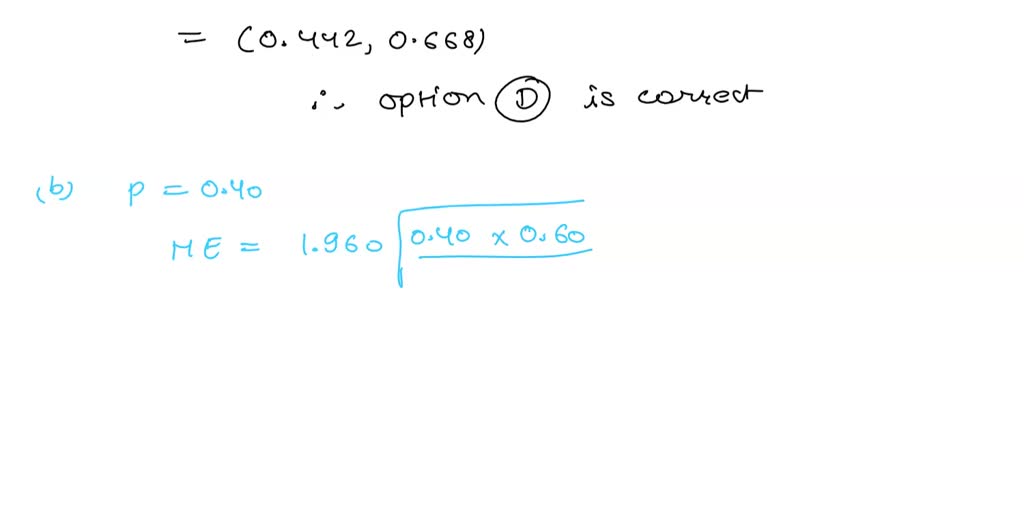 = (0.442, 0.668)
∴ option D is correct
(b) p = 0.40
ME = 1.960 √0.40 x 0.60